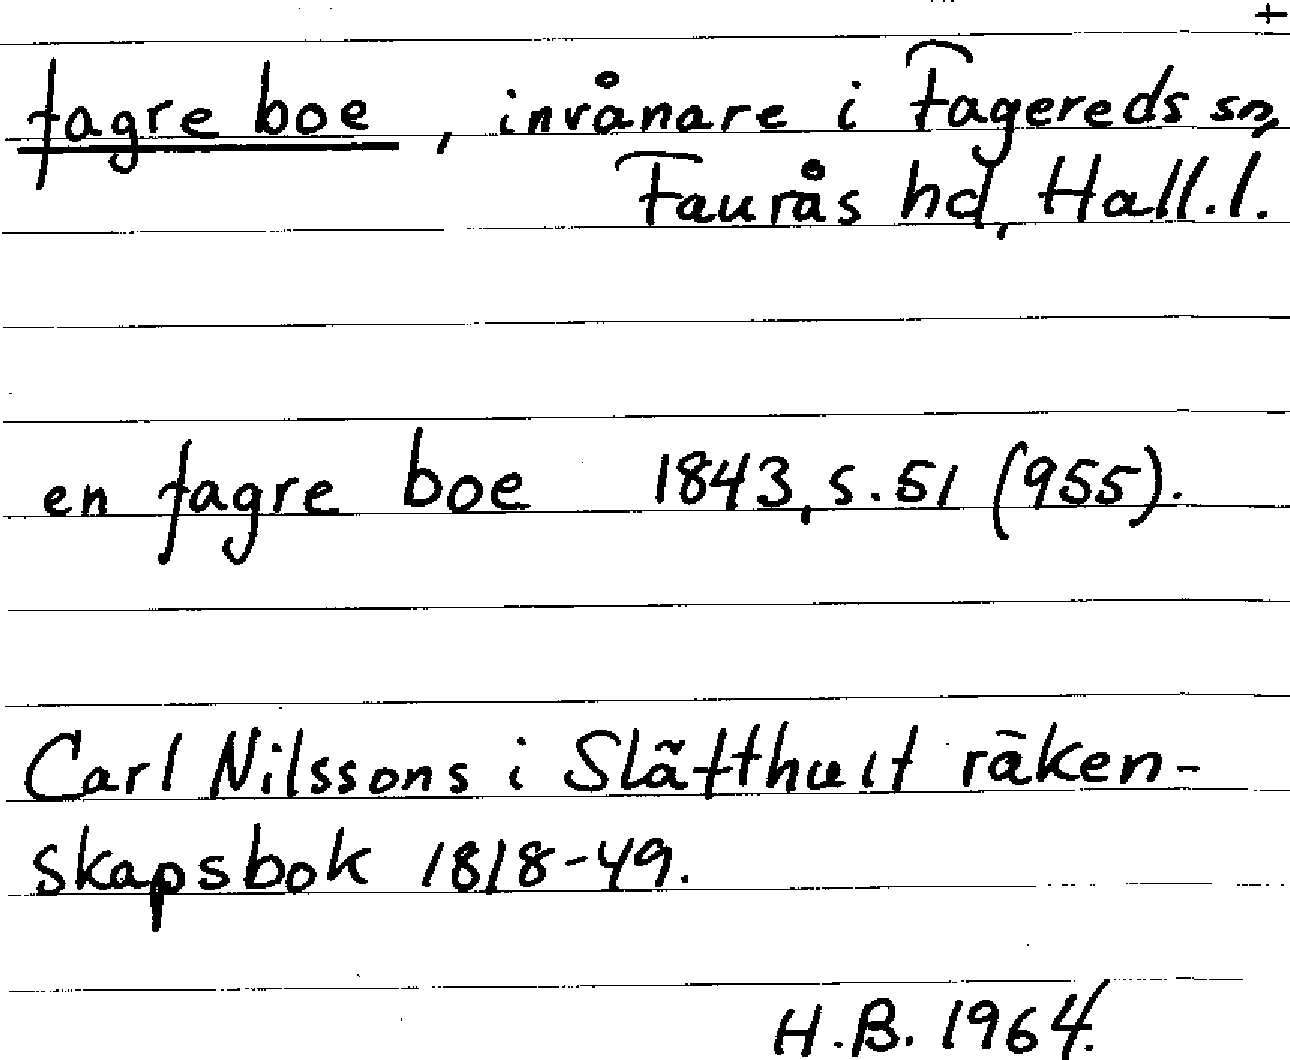 +
fagre boe, invånare i Fagereds sn,
Faurås hd, Hall.l.
en fagre boe 1843, s. 51 (955).
Carl Nilssons i Slätthult räken-
skapsbok 1818-49.
H.B. 1964.